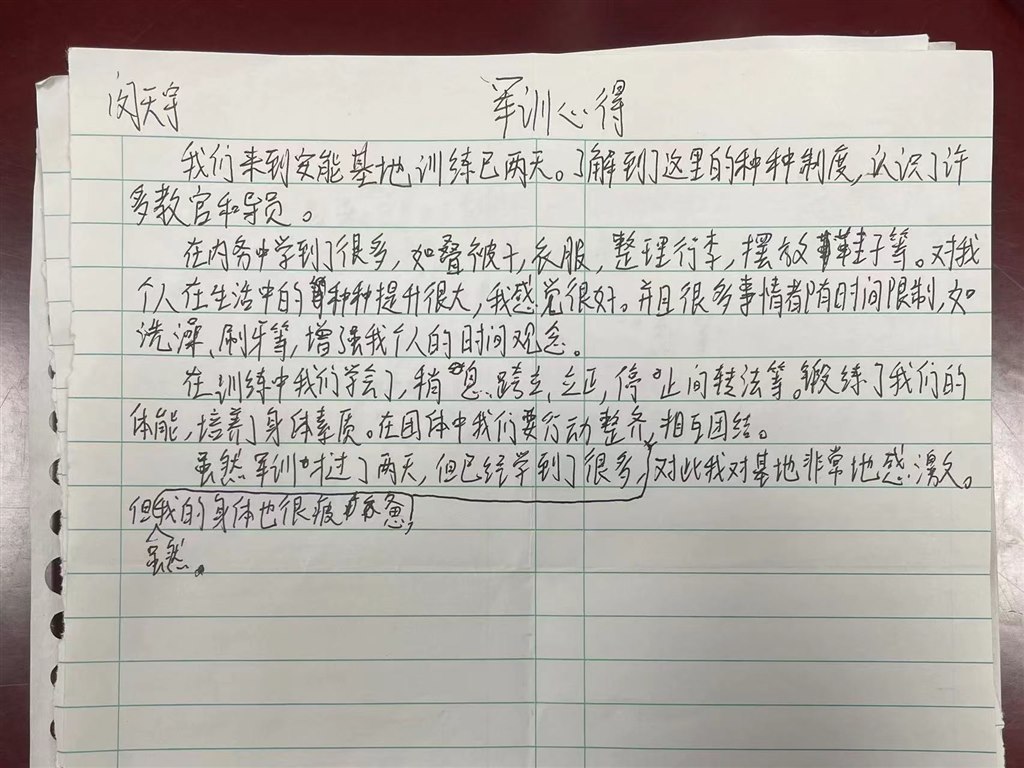 闵天宇 军训心得
我们来到安能基地训练已两天。了解到了这里的种种制度,认识了许
多教官和导员。
在内务中学到了很多,如叠被子,衣服,整理行李,摆放鞋子等。对我
个人在生活中的种种提升很大,我感觉很好。并且很多事情都有时间限制,如
洗澡、刷牙等,增强我个人的时间观念。
在训练中我们学会了,稍息、跨立、立正,停止间转法等。锻练了我们的
体能,培养了身体素质。在团体中我们要行动整齐,相互团结。
虽然军训才过了两天,但已经学到了很多,对此我对基地非常地感激。
但我的身体也很疲惫,
虽然。